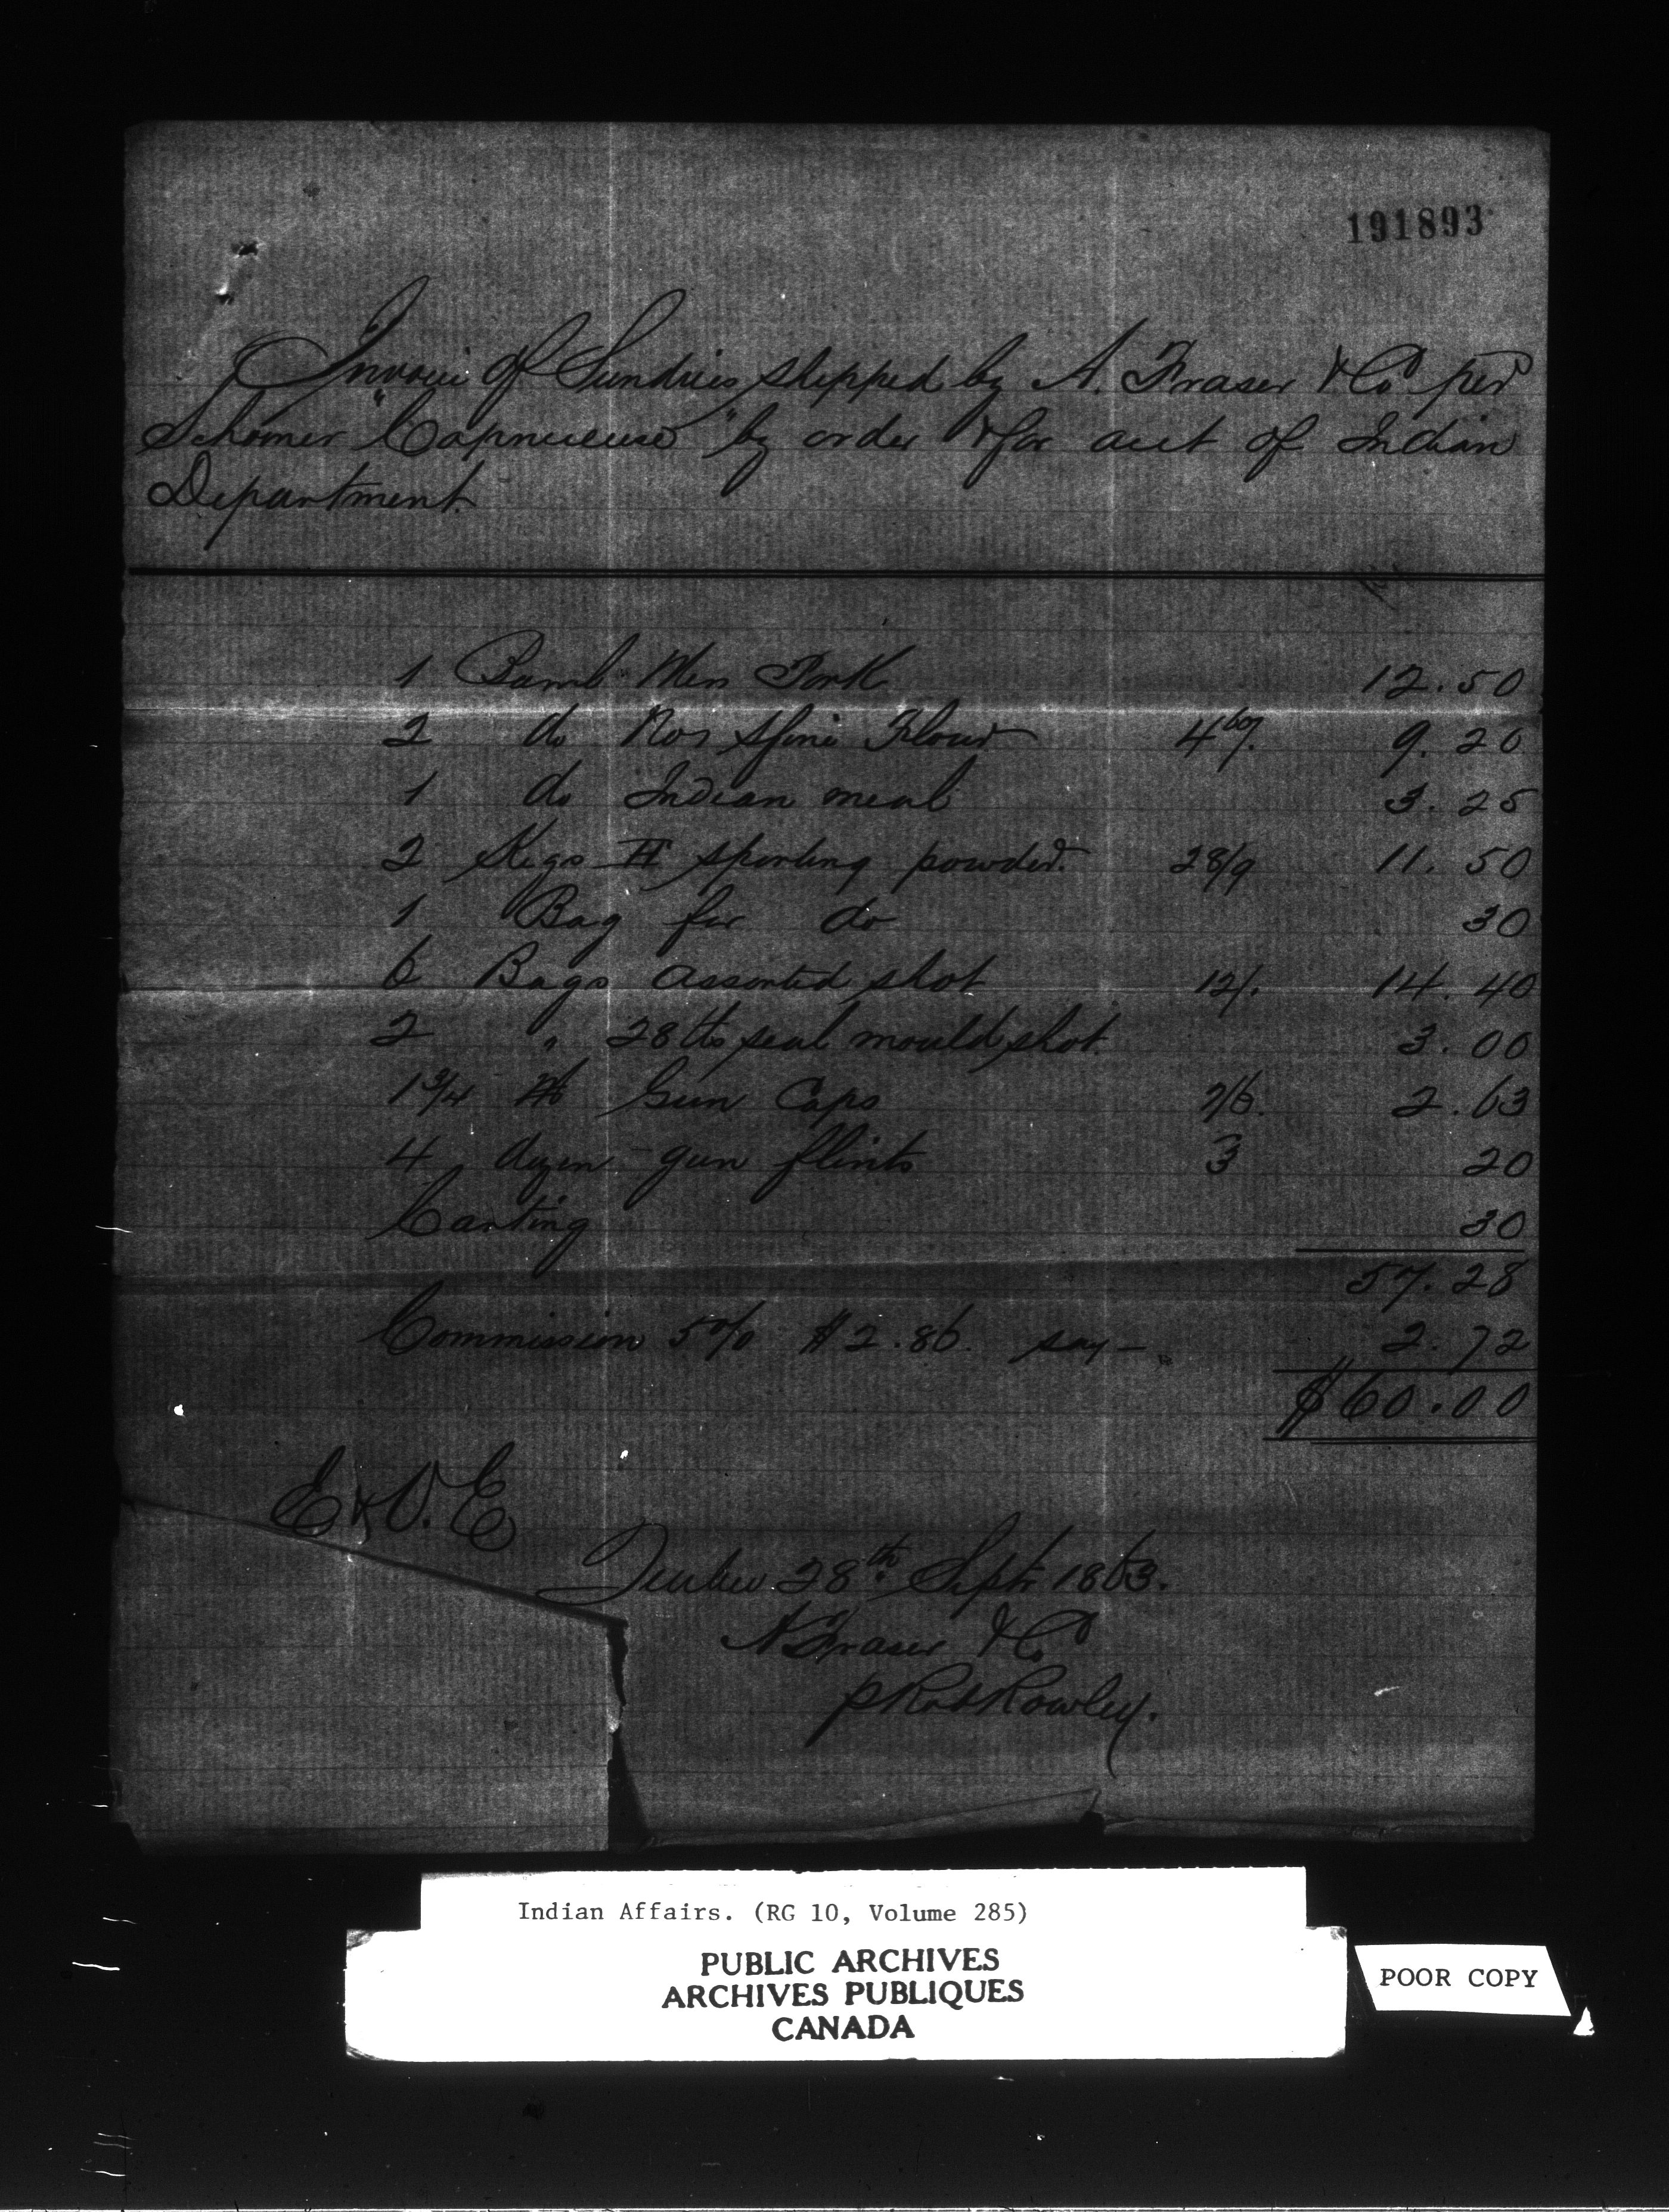 191893
Invoice of Sundries shipped by A. Fraser & Co per
Schooner "Capricieuse" by order & for acct of Indian
Department.
1 Barrel Mess Pork 12.50
2 do No 1 Sfine Flour 4 60/. 9.20
1 do Indian meal 3.25
2 Kegs FF sporting powder. 28/9 11.50
1 Bag for do 30
6 Bags assorted shot 12/. 14.40
2 " 28 lbs seal mould shot. 3.00
1 3/4 M Gun Caps 7/6. 2.63
4 dozen gun flints 3 20
Carting 30
57.28
Commission 5 o/o $2.86. say - 2.72
$60.00
E & O. E
Quebec 28th Septr 1863.
A Fraser & Co
p Robt Rowley.
Indian Affairs. (RG 10, Volume 285)
PUBLIC ARCHIVES
ARCHIVES PUBLIQUES
CANADA
POOR COPY